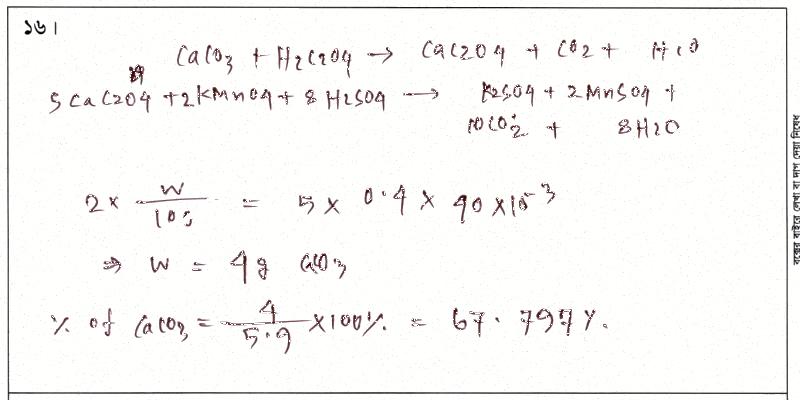 ১৬।
CaCO3 + H2C2O4 → CaC2O4 + CO2 + H2O
5CaC2O4 + 2KMnO4 + 8H2SO4 → K2SO4 + 2MnSO4 +
10CO2 + 8H2O
2 × W/100 = 5 × 0.4 × 40 × 10^-3
⇒ W = 4g CaCO3
% of CaCO3 = 4/5.9 × 100% = 67.797%.
বক্সের বাইরে লেখা বা দাগ দেয়া নিষেধ